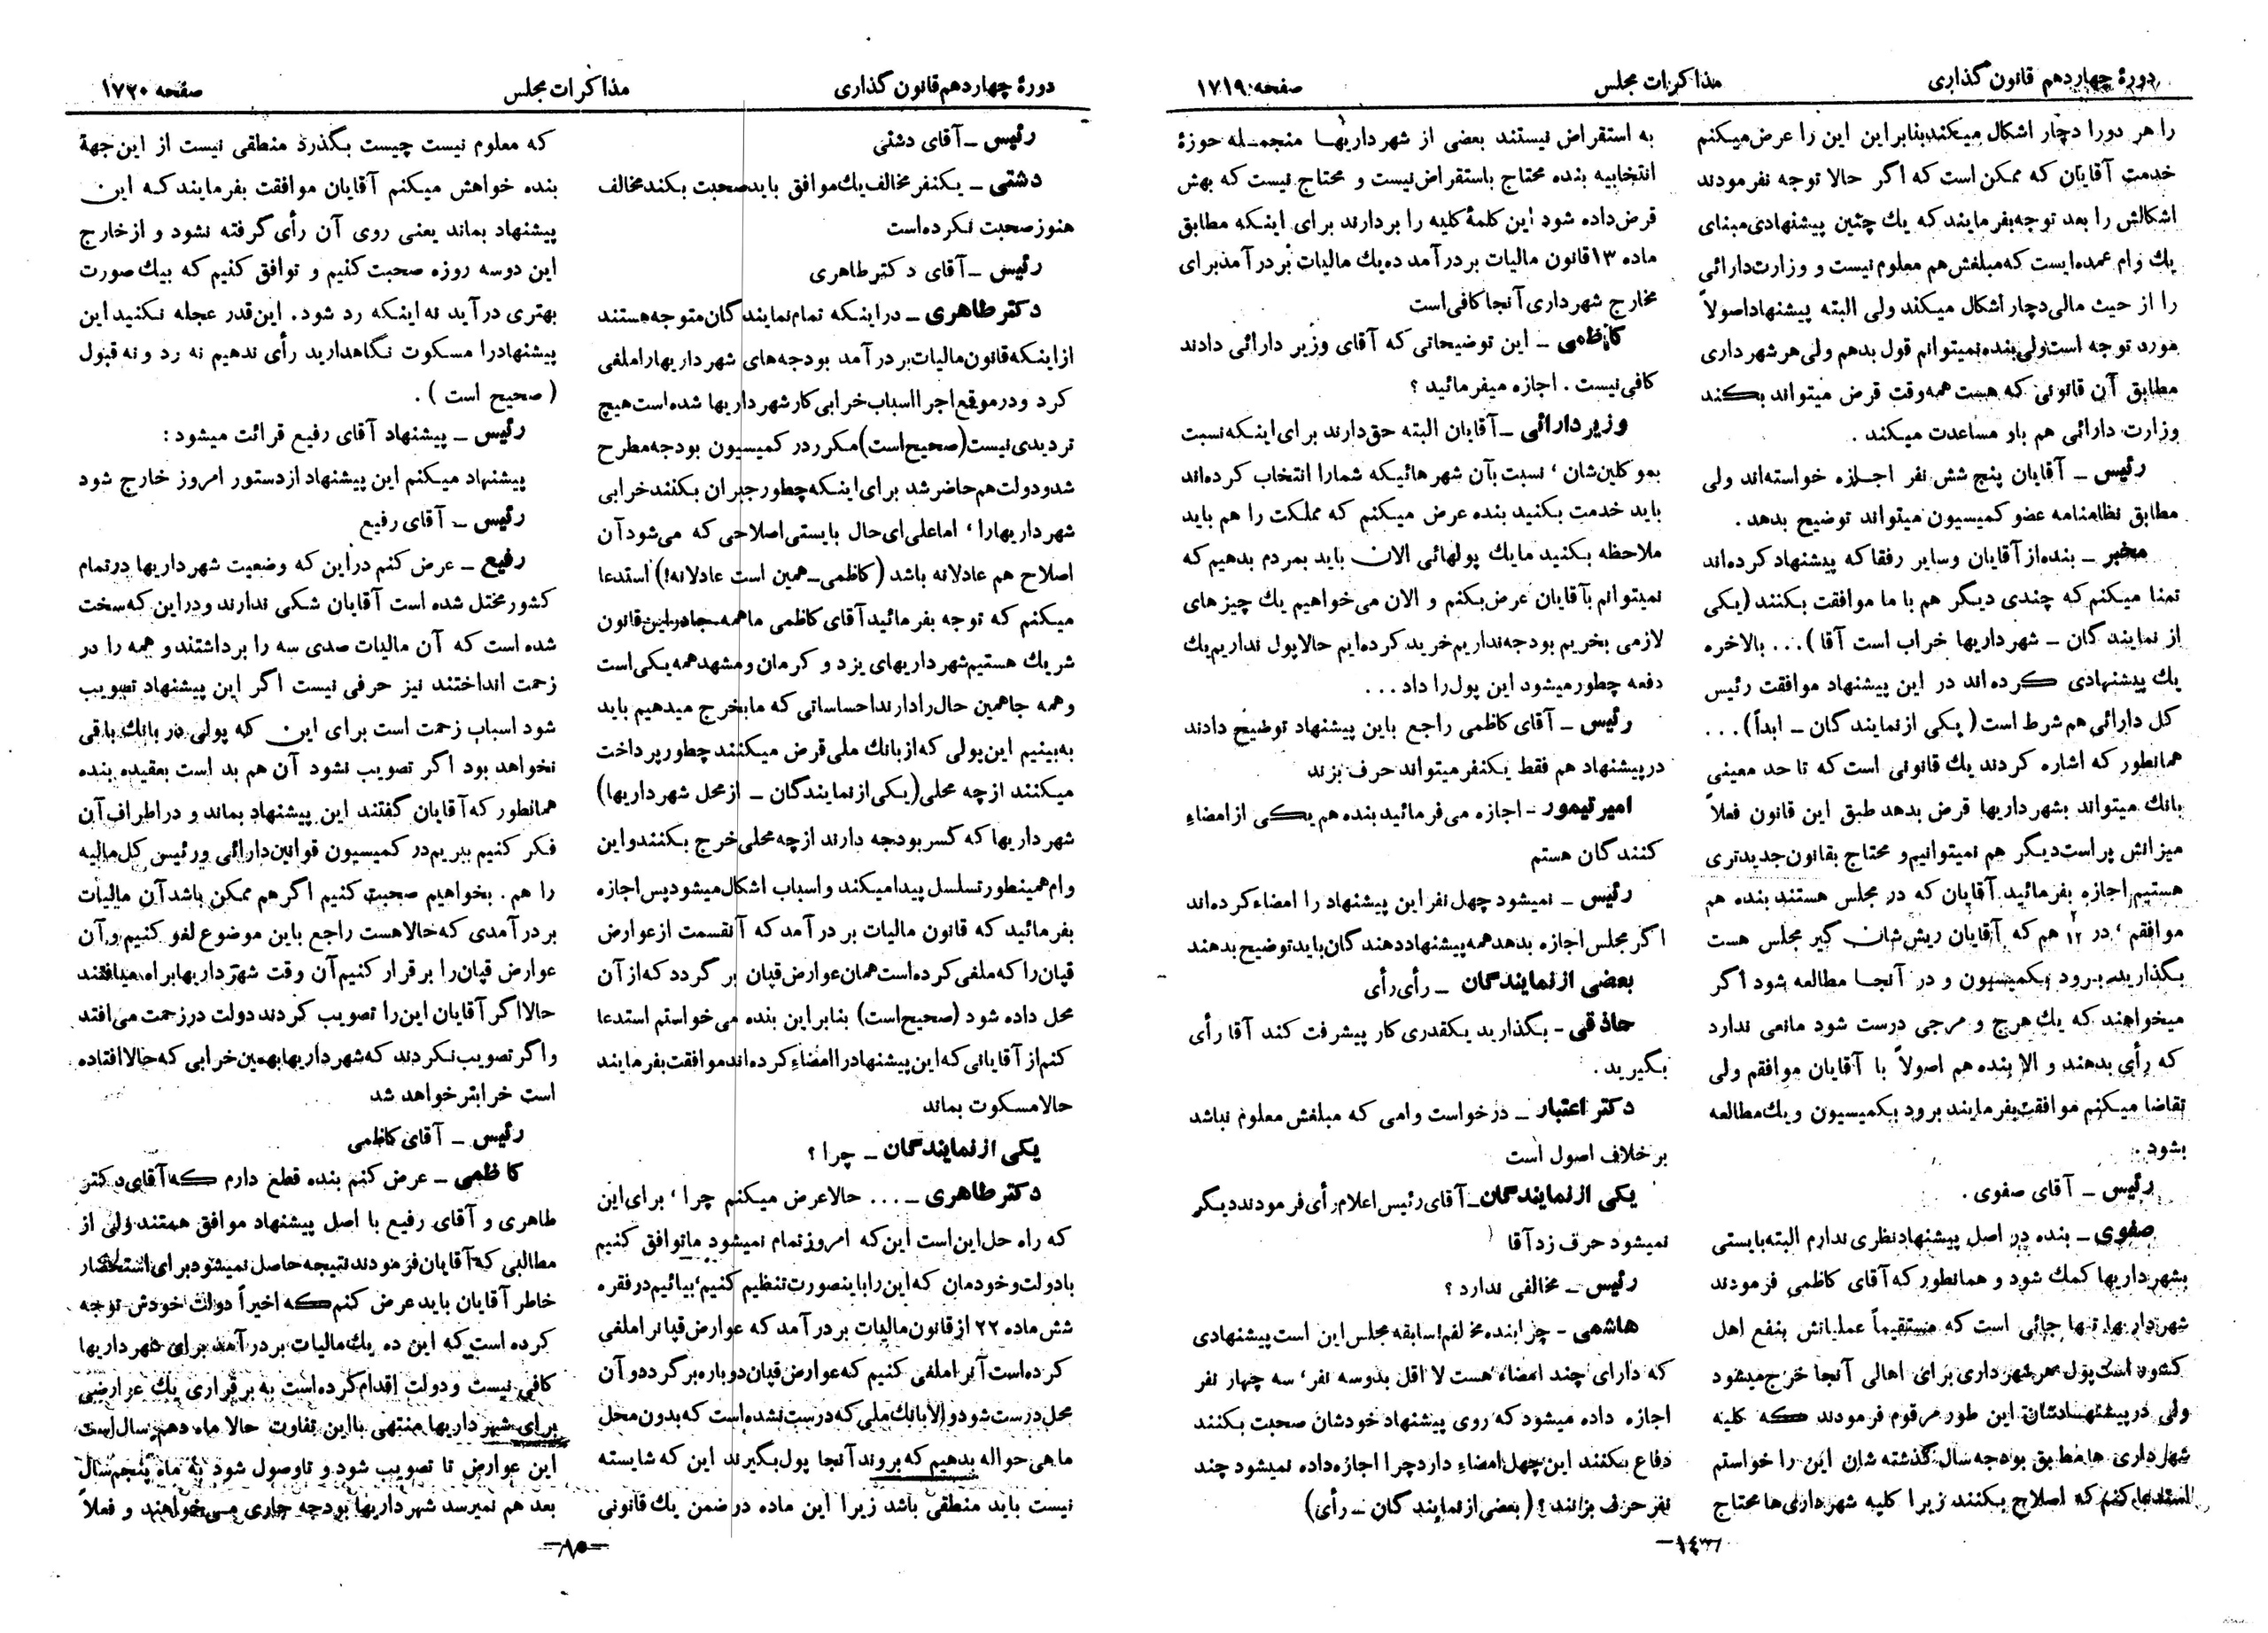 دورهٔ چهاردهم قانون گذاری
مذاکرات مجلس
صفحه ۱۷۱۹
را هر دورا دچار اشکال میکند بنابراین این را عرض میکنم
خدمت آقایان که ممکن است که اگر حالا توجه نفرمودند
اشکالش را بعد توجه بفرمایند که یك چنین پیشنهادی مبنای
یك وام عمده‌ایست که مبلغش هم معلوم نیست و وزارت دارائی
را از حیث مالی دچار اشکال میکند ولی البته پیشنهاد اصولاً
مورد توجه است ولی بنده نمیتوانم قول بدهم ولی هر شهرداری
مطابق آن قانونی که هست همه وقت قرض میتواند بکند
وزارت دارائی هم باو مساعدت میکند .
رئیس ــ آقایان پنج شش نفر اجازه خواسته‌اند ولی
مطابق نظامنامه عضو کمیسیون میتواند توضیح بدهد .
مخبر ــ بنده از آقایان وسایر رفقا که پیشنهاد کرده‌اند
تمنا میکنم که چندی دیگر هم با ما موافقت بکنند (یکی
از نمایندگان ــ شهرداریها خراب است آقا) ... بالاخره
یك پیشنهادی کرده‌اند در این پیشنهاد موافقت رئیس
کل دارائی هم شرط است ( یکی از نمایندگان ــ ابداً) ...
همانطور که اشاره کردند یك قانونی است که تا حد معینی
بانك میتواند بشهرداریها قرض بدهد طبق این قانون فعلاً
میزانش پر است دیگر هم نمیتوانیم و محتاج بقانون جدیدتری
هستیم اجازه بفرمائید آقایان که در مجلس هستند بنده هم
موافقم ، در ۱۲ هم که آقایان ریش‌شان گیر مجلس هست
بگذارید برود بکمیسیون و در آنجا مطالعه شود اگر
میخواهند که یك هرج و مرجی درست شود مانعی ندارد
که رأی بدهند و الا بنده هم اصولاً با آقایان موافقم ولی
تقاضا میکنم موافقت بفرمایند برود بکمیسیون و یك مطالعه
بشود .
رئیس ــ آقای صفوی .
صفوی ــ بنده در اصل پیشنهاد نظری ندارم البته بایستی
بشهرداریها کمك شود و همانطور که آقای کاظمی فرمودند
شهرداریها تنها جائی است که مستقیماً عملیاتش بنفع اهل
کشور است پول هر شهرداری برای اهالی آنجا خرج میشود
ولی در پیشنهادشان این طور مرقوم فرمودند که کلیه
شهرداری ها مطابق بودجه سال گذشته شان این را خواستم
استدعا کنم که اصلاح بکنند زیرا کلیه شهرداری‌ها محتاج
به استقراض نیستند بعضی از شهرداریها منجمله حوزهٔ
انتخابیه بنده محتاج باستقراض نیست و محتاج نیست که بهش
قرض داده شود این کلمهٔ کلیه را بردارند برای اینکه مطابق
ماده ۱۳ قانون مالیات بر درآمد ده یك مالیات بر درآمد برای
مخارج شهرداری آنجا کافی است
کاظمی ــ این توضیحاتی که آقای وزیر دارائی دادند
کافی نیست . اجازه میفرمائید ؟
وزیر دارائی ــ آقایان البته حق دارند برای اینکه نسبت
بموکلین‌شان ، نسبت بآن شهرهائیکه شمارا انتخاب کرده‌اند
باید خدمت بکنید بنده عرض میکنم که مملکت را هم باید
ملاحظه بکنید ما یك پولهائی الان باید بمردم بدهیم که
نمیتوانم بآقایان عرض بکنم و الان می‌خواهیم یك چیزهای
لازمی بخریم بودجه نداریم خرید کرده‌ایم حالا پول نداریم یك
دفعه چطور میشود این پول را داد ...
رئیس ــ آقای کاظمی راجع باین پیشنهاد توضیح دادند
در پیشنهاد هم فقط یکنفر میتواند حرف بزند
امیر تیمور ــ اجازه می‌فرمائید بنده هم یکی از امضاء
کنندگان هستم
رئیس ــ نمیشود چهل نفر این پیشنهاد را امضاء کرده‌اند
اگر مجلس اجازه بدهد همه پیشنهاد دهندگان باید توضیح بدهند
بعضی از نمایندگان ــ رأی رأی
حاذقی ــ بگذارید یکقدری کار پیشرفت کند آقا رأی
بگیرید .
دکتر اعتبار ــ درخواست وامی که مبلغش معلوم نباشد
برخلاف اصول است
یکی از نمایندگان ــ آقای رئیس اعلام رأی فرمودند دیگر
نمیشود حرف زد آقا
رئیس ــ مخالفی ندارد ؟
هاشمی ــ چرا بنده مخالفم! سابقه مجلس این است پیشنهادی
که دارای چند امضاء هست لااقل بدوسه نفر ، سه چهار نفر
اجازه داده میشود که روی پیشنهاد خودشان صحبت بکنند
دفاع بکنند این چهل امضاء دارد چرا اجازه داده نمیشود چند
نفر حرف بزنند ؟ ( بعضی از نمایندگان ــ رأی)
دورهٔ چهاردهم قانون گذاری
مذاکرات مجلس
صفحه ۱۷۲۰
رئیس ــ آقای دشتی
دشتی ــ یکنفر مخالف یك موافق باید صحبت بکند مخالف
هنوز صحبت نکرده‌است
رئیس ــ آقای دکتر طاهری
دکتر طاهری ــ در اینکه تمام نمایندگان متوجه هستند
از اینکه قانون مالیات بر درآمد بودجه‌های شهرداریها را ملغی
کرد ودر موقع اجرا اسباب خرابی کار شهرداریها شده است هیچ
تردیدی نیست (صحیح است) مکرر در کمیسیون بودجه مطرح
شد و دولت هم حاضر شد برای اینکه چطور جبران بکنند خرابی
شهرداریهارا ، اما علی ای حال بایستی اصلاحی که می‌شود آن
اصلاح هم عادلانه باشد (کاظمی ــ همین است عادلانه!) استدعا
میکنم که توجه بفرمائید آقای کاظمی ما همه جا در این قانون
شریك هستیم شهرداریهای یزد و کرمان و مشهد همه یکی است
و همه جا همین حال را دارند احساساتی که ما بخرج میدهیم باید
به‌بینیم این پولی که از بانك ملی قرض میکنند چطور پرداخت
میکنند از چه محلی (یکی از نمایندگان ــ از محل شهرداریها)
شهرداریها که کسر بودجه دارند از چه محلی خرج بکنند و این
وام همینطور تسلسل پیدا میکند و اسباب اشکال میشود پس اجازه
بفرمائید که قانون مالیات بر درآمد که آنقسمت از عوارض
قپان را که ملغی کرده‌است همان عوارض قپان بر گردد که از آن
محل داده شود (صحیح است) بنابراین بنده می‌خواستم استدعا
کنم از آقایانی که این پیشنهاد را امضاء کرده‌اند موافقت بفرمایند
حالا مسکوت بماند
یکی از نمایندگان ــ چرا ؟
دکتر طاهری ــ ... حالا عرض میکنم چرا ، برای این
که راه حل این است این که امروز تمام نمیشود ما توافق کنیم
با دولت و خودمان که این را باینصورت تنظیم کنیم ، بیائیم در فقره
شش ماده ۲۲ از قانون مالیات بر درآمد که عوارض قپانرا ملغی
کرده‌است آنرا ملغی کنیم که عوارض قپان دوباره برگردد و آن
محل درست شود و الا بانك ملی که درست نشده است که بدون محل
ما هی حواله بدهیم که بروند آنجا پول بگیرند این که شایسته
نیست باید منطقی باشد زیرا این ماده در ضمن یك قانونی
که معلوم نیست چیست بگذرد منطقی نیست از این جههٔ
بنده خواهش میکنم آقایان موافقت بفرمایند که این
پیشنهاد بماند یعنی روی آن رأی گرفته نشود و از خارج
این دوسه روزه صحبت کنیم و توافق کنیم که بیك صورت
بهتری درآید نه اینکه رد شود . این قدر عجله نکنید این
پیشنهاد را مسکوت نگاهدارید رأی ندهیم نه رد و نه قبول
( صحیح است ) .
رئیس ــ پیشنهاد آقای رفیع قرائت میشود :
پیشنهاد میکنم این پیشنهاد از دستور امروز خارج شود
رئیس ــ آقای رفیع
رفیع ــ عرض کنم دراین که وضعیت شهرداریها در تمام
کشور مختل شده است آقایان شکی ندارند ودراین که سخت
شده است که آن مالیات صدی سه را برداشتند و همه را در
زحمت انداختند نیز حرفی نیست اگر این پیشنهاد تصویب
شود اسباب زحمت است برای این که پولی در بانك باقی
نخواهد بود اگر تصویب نشود آن هم بد است بعقیده بنده
همانطور که آقایان گفتند این پیشنهاد بماند و در اطراف آن
فکر کنیم ببریم در کمیسیون قوانین دارائی و رئیس کل مالیه
را هم . بخواهیم صحبت کنیم اگر هم ممکن باشد آن مالیات
بر درآمدی که حالا هست راجع باین موضوع لغو کنیم و آن
عوارض قپان را برقرار کنیم آن وقت شهرداریها براه میافتند
حالا اگر آقایان این را تصویب کردند دولت در زحمت می‌افتد
و اگر تصویب نکردند که شهرداریها بهمین خرابی که حالا افتاده
است خرابتر خواهد شد
رئیس ــ آقای کاظمی
کاظمی ــ عرض کنم بنده قطع دارم که آقای دکتر
طاهری و آقای رفیع با اصل پیشنهاد موافق هستند ولی از
مطالبی که آقایان فرمودند نتیجه حاصل نمیشود برای استحضار
خاطر آقایان باید عرض کنم که اخیراً دولت خودش توجه
کرده است که این ده یك مالیات بر درآمد برای شهرداریها
کافی نیست و دولت اقدام کرده‌است به برقراری یك عوارضی
برای شهرداریها منتهی با این تفاوت حالا ماه دهم سال است
این عوارض تا تصویب شود و تا وصول شود به ماه پنجم سال
بعد هم نمیرسد شهرداریها بودجه جاری می‌خواهند و فعلاً